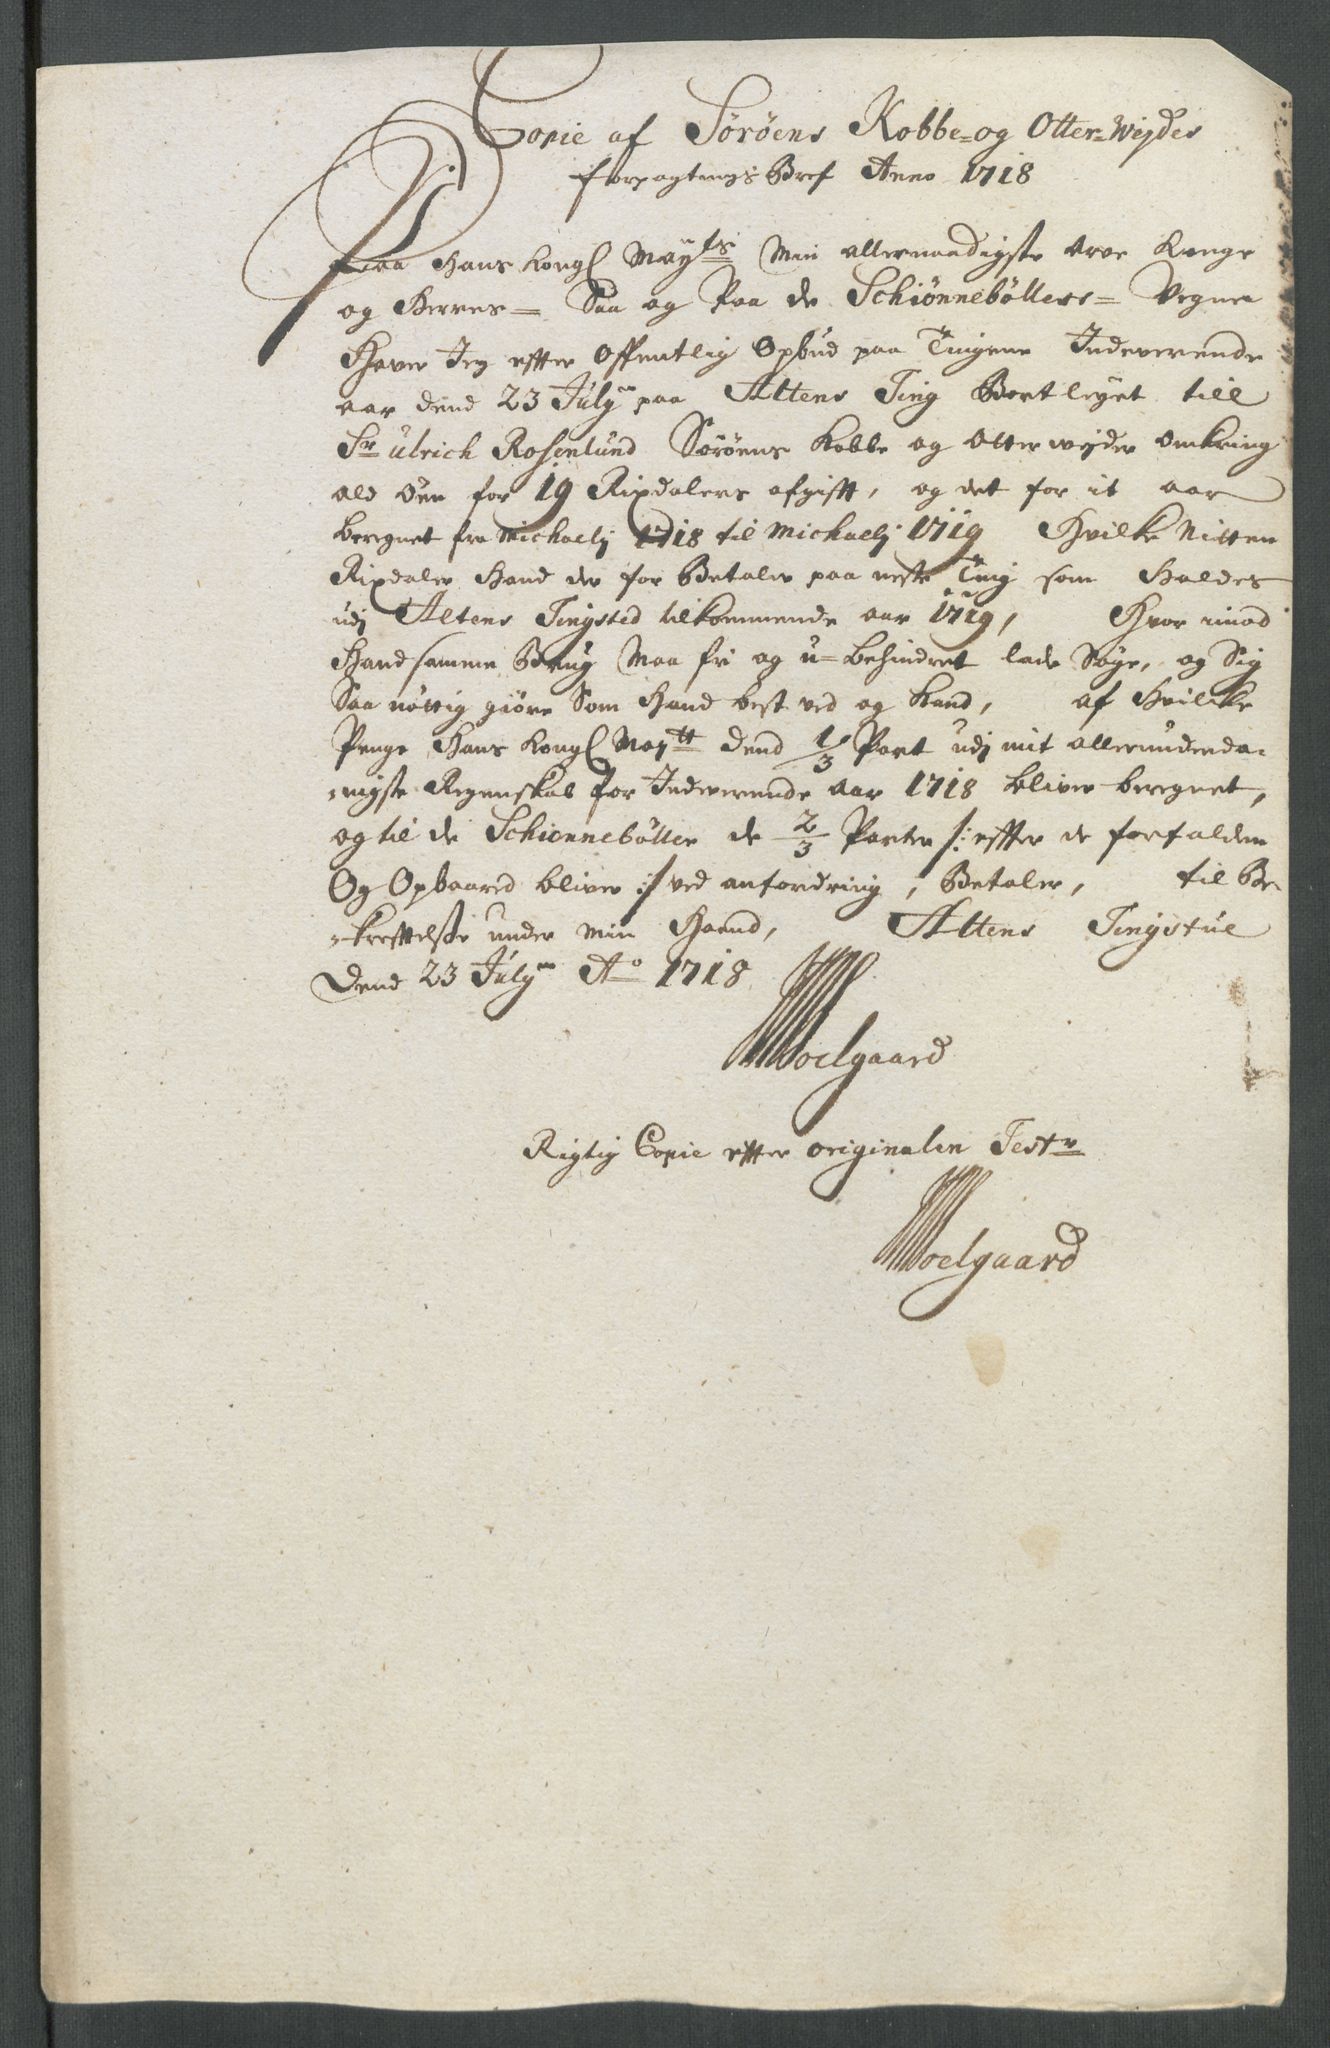 Copie af Sørøens Kobbe- og Otter-Weydes
forpagtnings Bref Anno 1718
Paa Hans Kongl May^ts Min allernaadigste Arve Konge
og Herres = Saa og Paa de Schiønnebøllers = Vegne
Haver Jeg effter Offentlig Opbud paa Tingene Indeverende
aar dend 23 July paa Altens Ting Bortleyet till
Sr Ulrich Rosenlund Sørøens Kobbe og Otter weyder omkring
ald Øen for 19 Rixdalers afgifft, og det for it aar
beregnet fra Michaelj 1718 til Michaelj 1719 Hvilke Nitten
Rixdaler Hand der for Betaler paa neste Ting som Holdes
udj Altens Tingsted tilkommende aar 1719, Hvor imod
Hand samme Brug Maa fri og u=behindret lade Søge, og Sig
Saa nøttig giøre Som Hand best ved og Kand, af Hvilcke
Penge Hans Kongl May^tt dend 1/3 Part udj mit allerunderda-
-nigste Regenskab for Indeverende Aar 1718 bliver beregnet,
og til de Schiønnebøller de 2/3 Parter /: effter de forfalden
Og Opbaared bliver :/ ved anfordring, Betaler, til Be-
-krefftelsse under Min Haand, Altens Tingstue
Dend 23 July Ao 1718
Noelgaard
Rigtig Copie effter originalen Test^r
Noelgaard